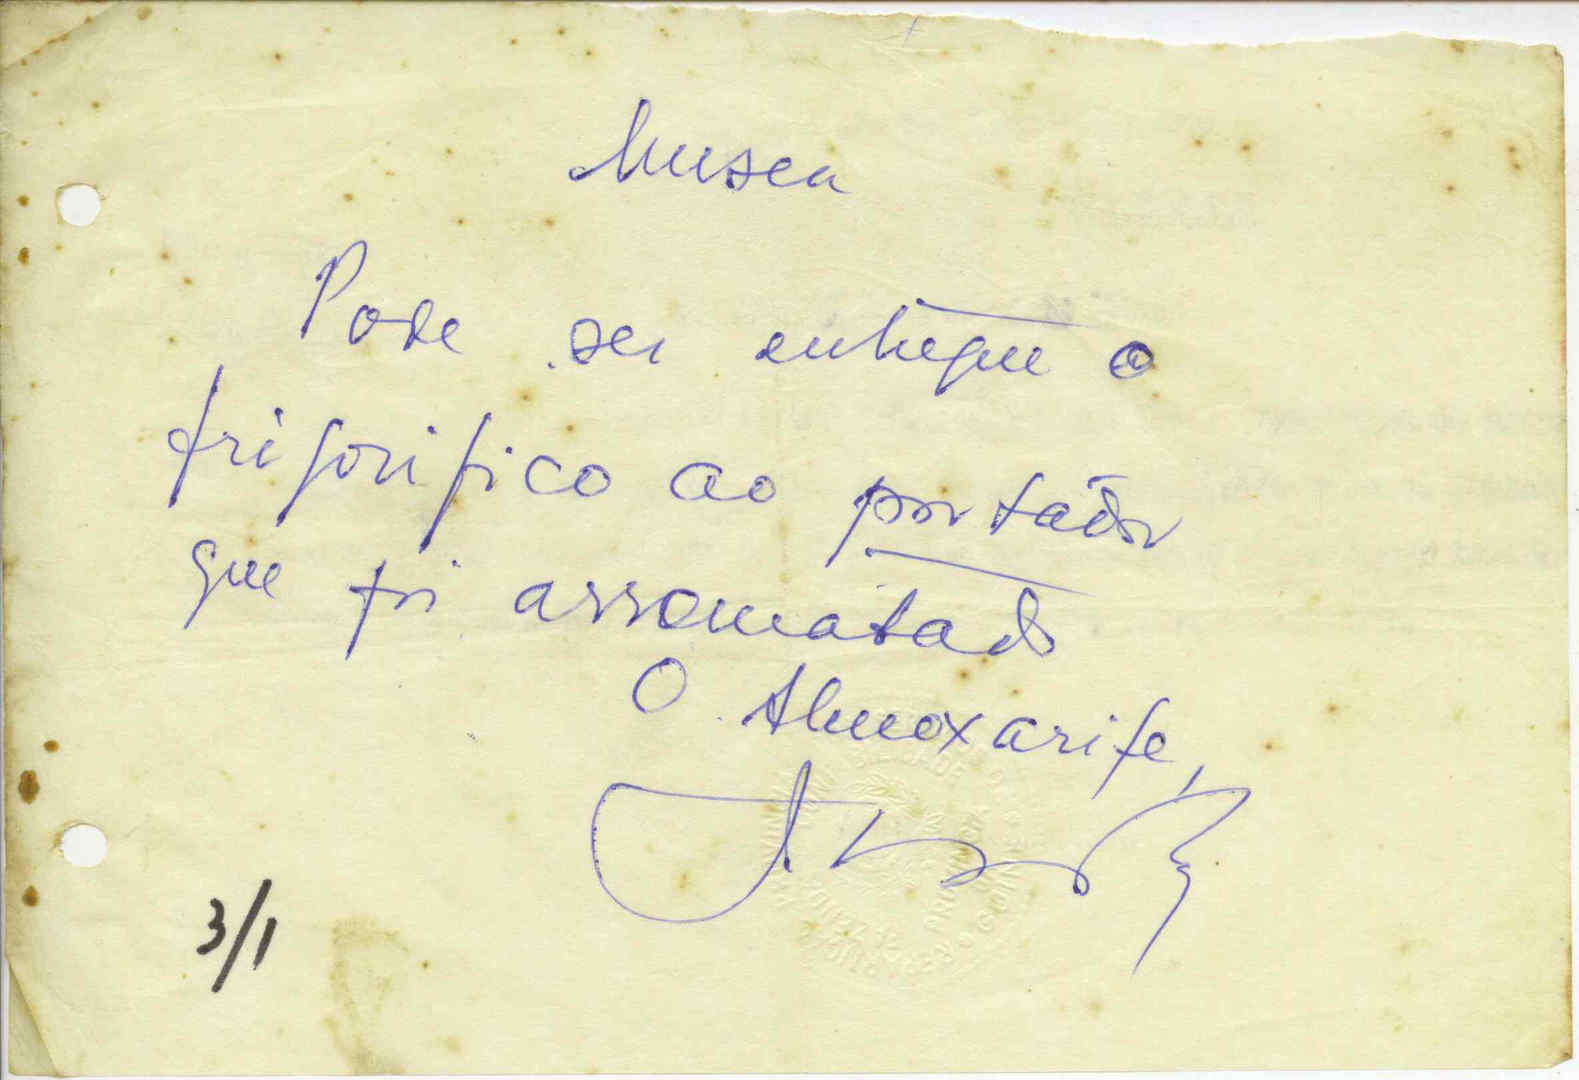 Museu
Pode ser entregue o
frigorifico ao portador
que foi arrematado
O Almoxarife,
3/1